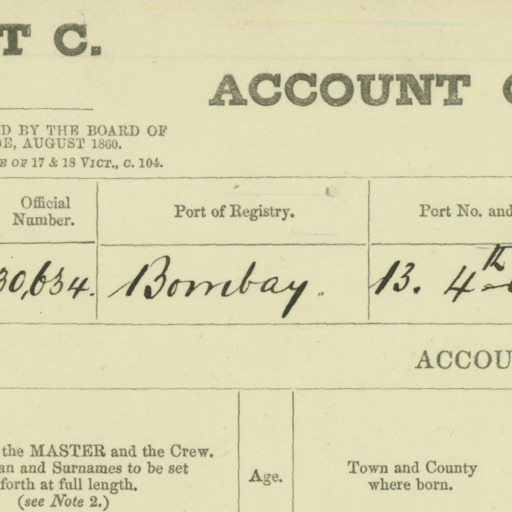 T C.
ACCOUNT
D BY THE BOARD OF
DE, AUGUST 1860.
E OF 17 & 18 VICT., C. 104.
Official
Number.
Port of Registry.
Port No. and
30,634.
Bombay.
13. 4th
ACCOU
the MASTER and the Crew.
an and Surnames to be set
forth at full length.
(see Note 2.)
Age.
Town and County
where born.